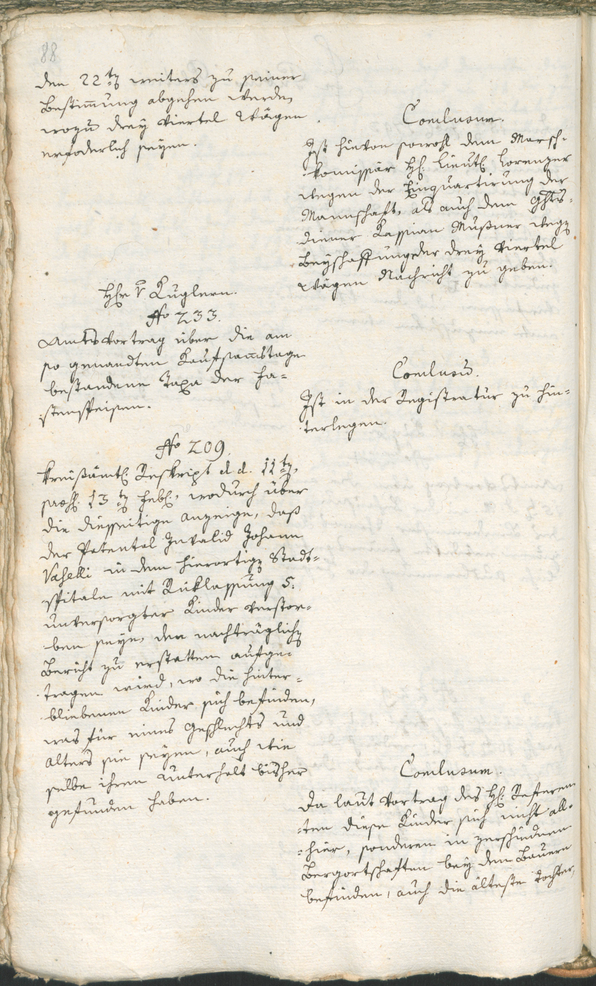 88
den 22ten weiters zu seiner
Bestimmung abgehen werde,
wozu drey Viertel Wägen
erfoderlich seyen.
Conclusum.
Ist hievon sowohl dem Marsch-
Kommissär H: Lieut: Lorenzer
wegen der Einquartirung der
Mannschaft, als auch dem Ghts-
diener Kassian Mußner wegen
Beyschaffung der drey Viertel
Wägen Nachricht zu geben.
Hhr v Kuglern.
No 233.
Amtsvortrag über die am
so genandten Kaufsamstage
bestandene Taxa der Fa-
stenspeisen.
Conclusum.
Ist in der Registratur zu hin-
terlegen.
No 209.
Kreisämtl: Reskript d. d. 11ten
praes: 13ten Febr:, wodurch über
die diesseitige Anzeige, daß
der Patental Invalid Johann
Vaselli in dem hierortigen Stadt-
spitale mit Rüklassung 5
unversorgter Kinder verstor-
ben seye, der nachträgliche
Bericht zu erstatten aufge-
tragen wird, wo die hinter-
bliebenen Kinder sich befinden,
was für eines Geschlechts und
Alters sie seyen, auch wie
selbe ihren Unterhalt bisher
gefunden haben.
Conclusum.
Da laut Vortrag des H: Referen-
ten diese Kinder sich nicht all-
hier, sonderen in zerschiedenen
Bergortschaften bey den Bauern
befinden, auch die älteste Tochter,